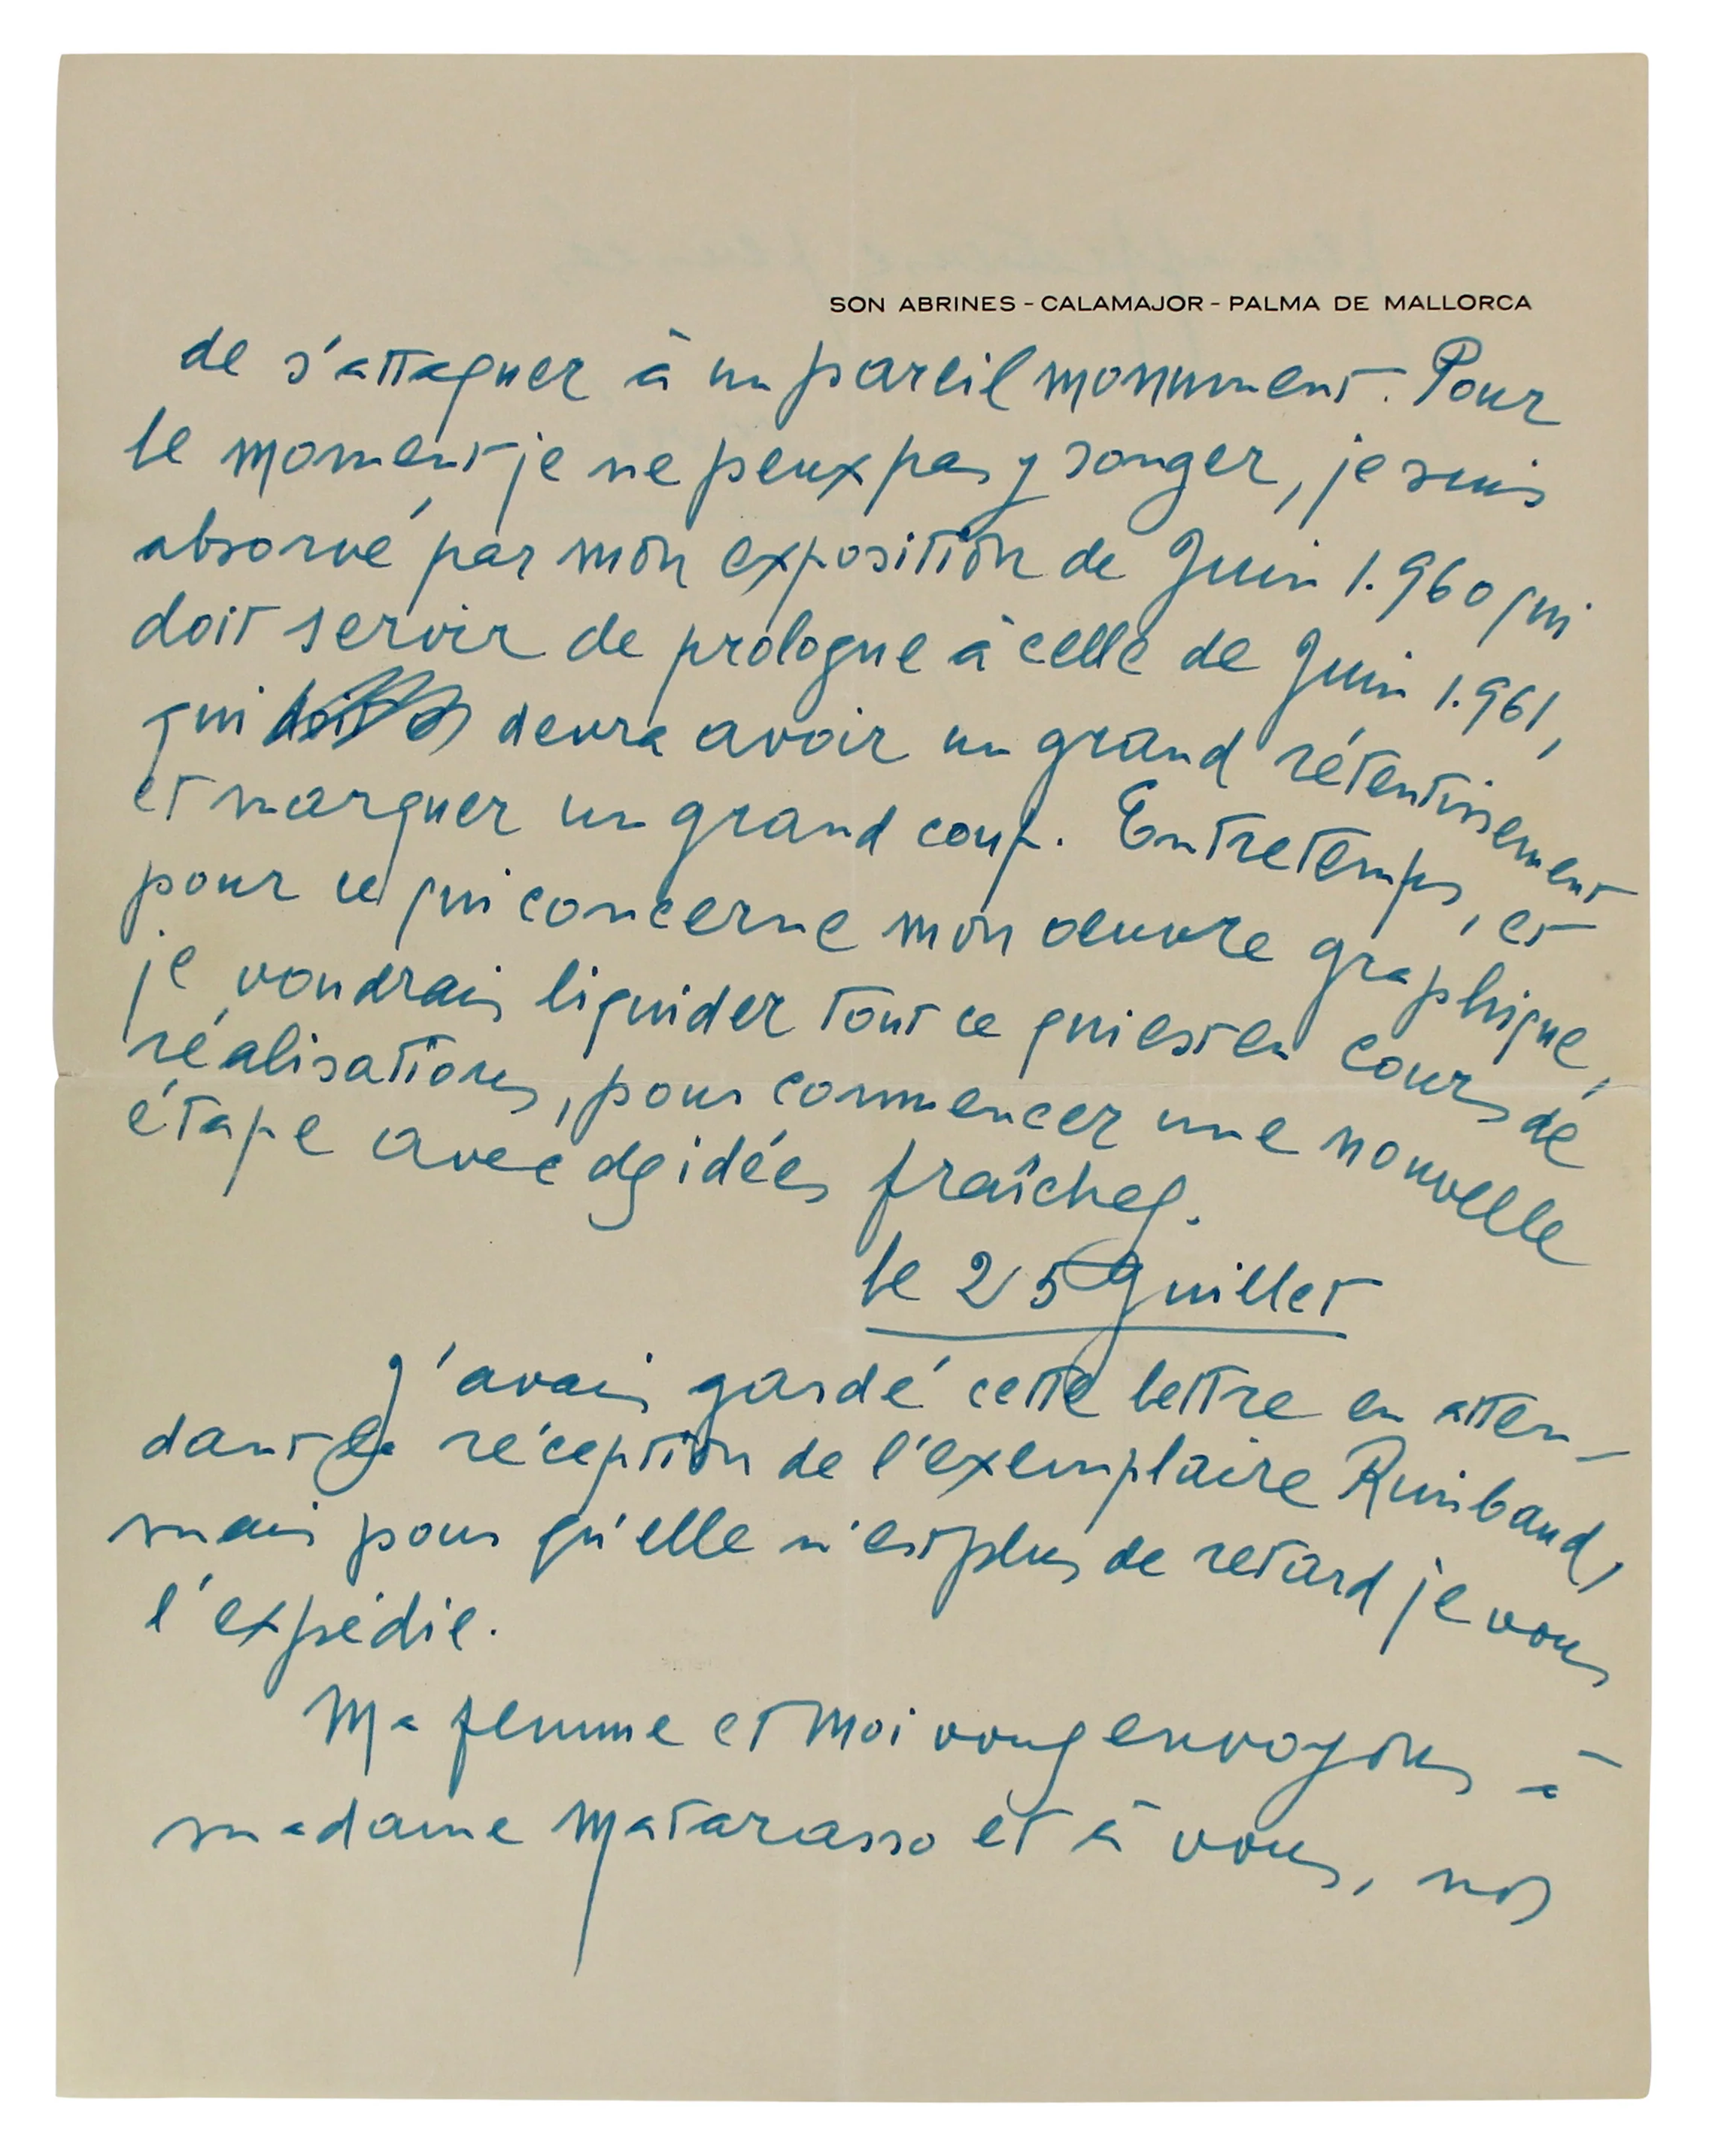 SON ABRINES - CALAMAJOR - PALMA DE MALLORCA
de s'attaquer à un pareil monument. Pour
le moment je ne peux pas y songer, je suis
absorvé par mon exposition de Juin 1.960 qui
doit servir de prologue à celle de Juin 1.961,
qui doit devra avoir un grand rétentissement
et marquer un grand coup. Entretemps, et
pour ce qui concerne mon oeuvre graphique,
je voudrais liquider tout ce qui est en cours de
réalisations, pour commencer une nouvelle
étape avec des idées fraîches.
le 25 Juillet
J'avais gardé cette lettre en atten-
dant la réception de l'exemplaire Rimbaud,
mais pour qu'elle n'est plus de retard je vous
l'expédie.
Ma femme et moi vous envoyons à
madame Matarasso et à vous, nos